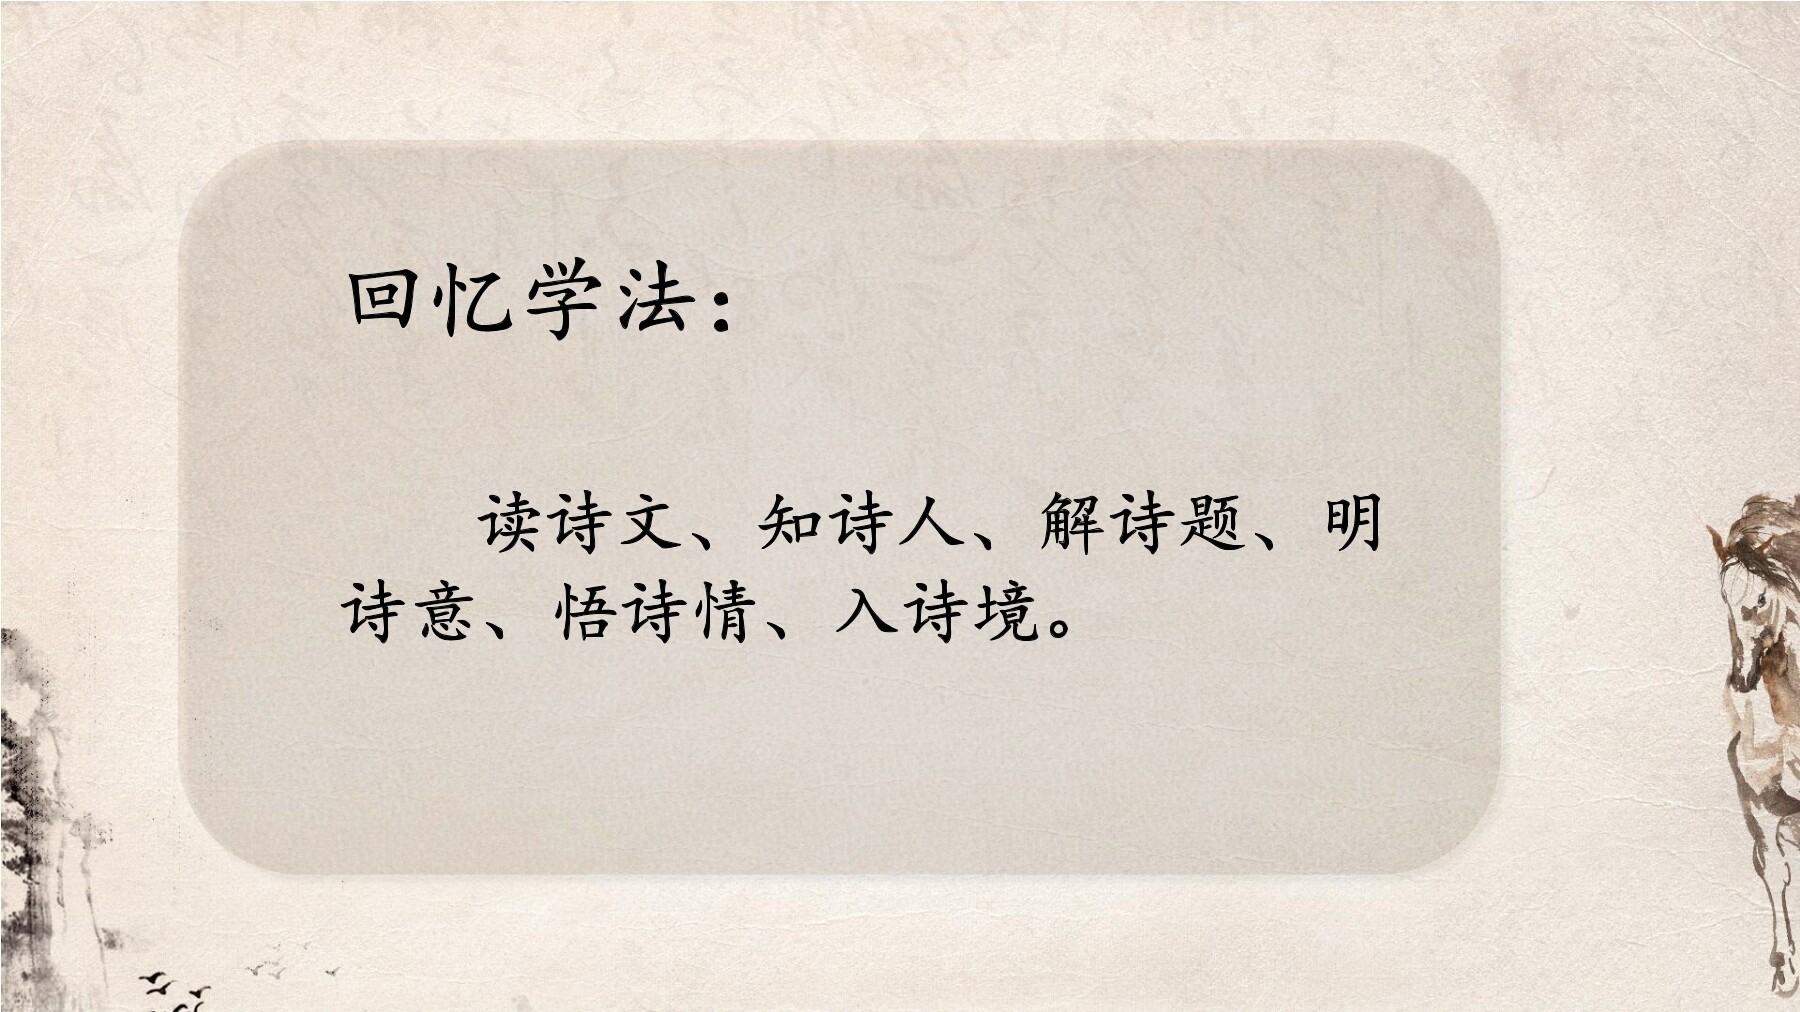 回忆学法：
读诗文、知诗人、解诗题、明
诗意、悟诗情、入诗境。